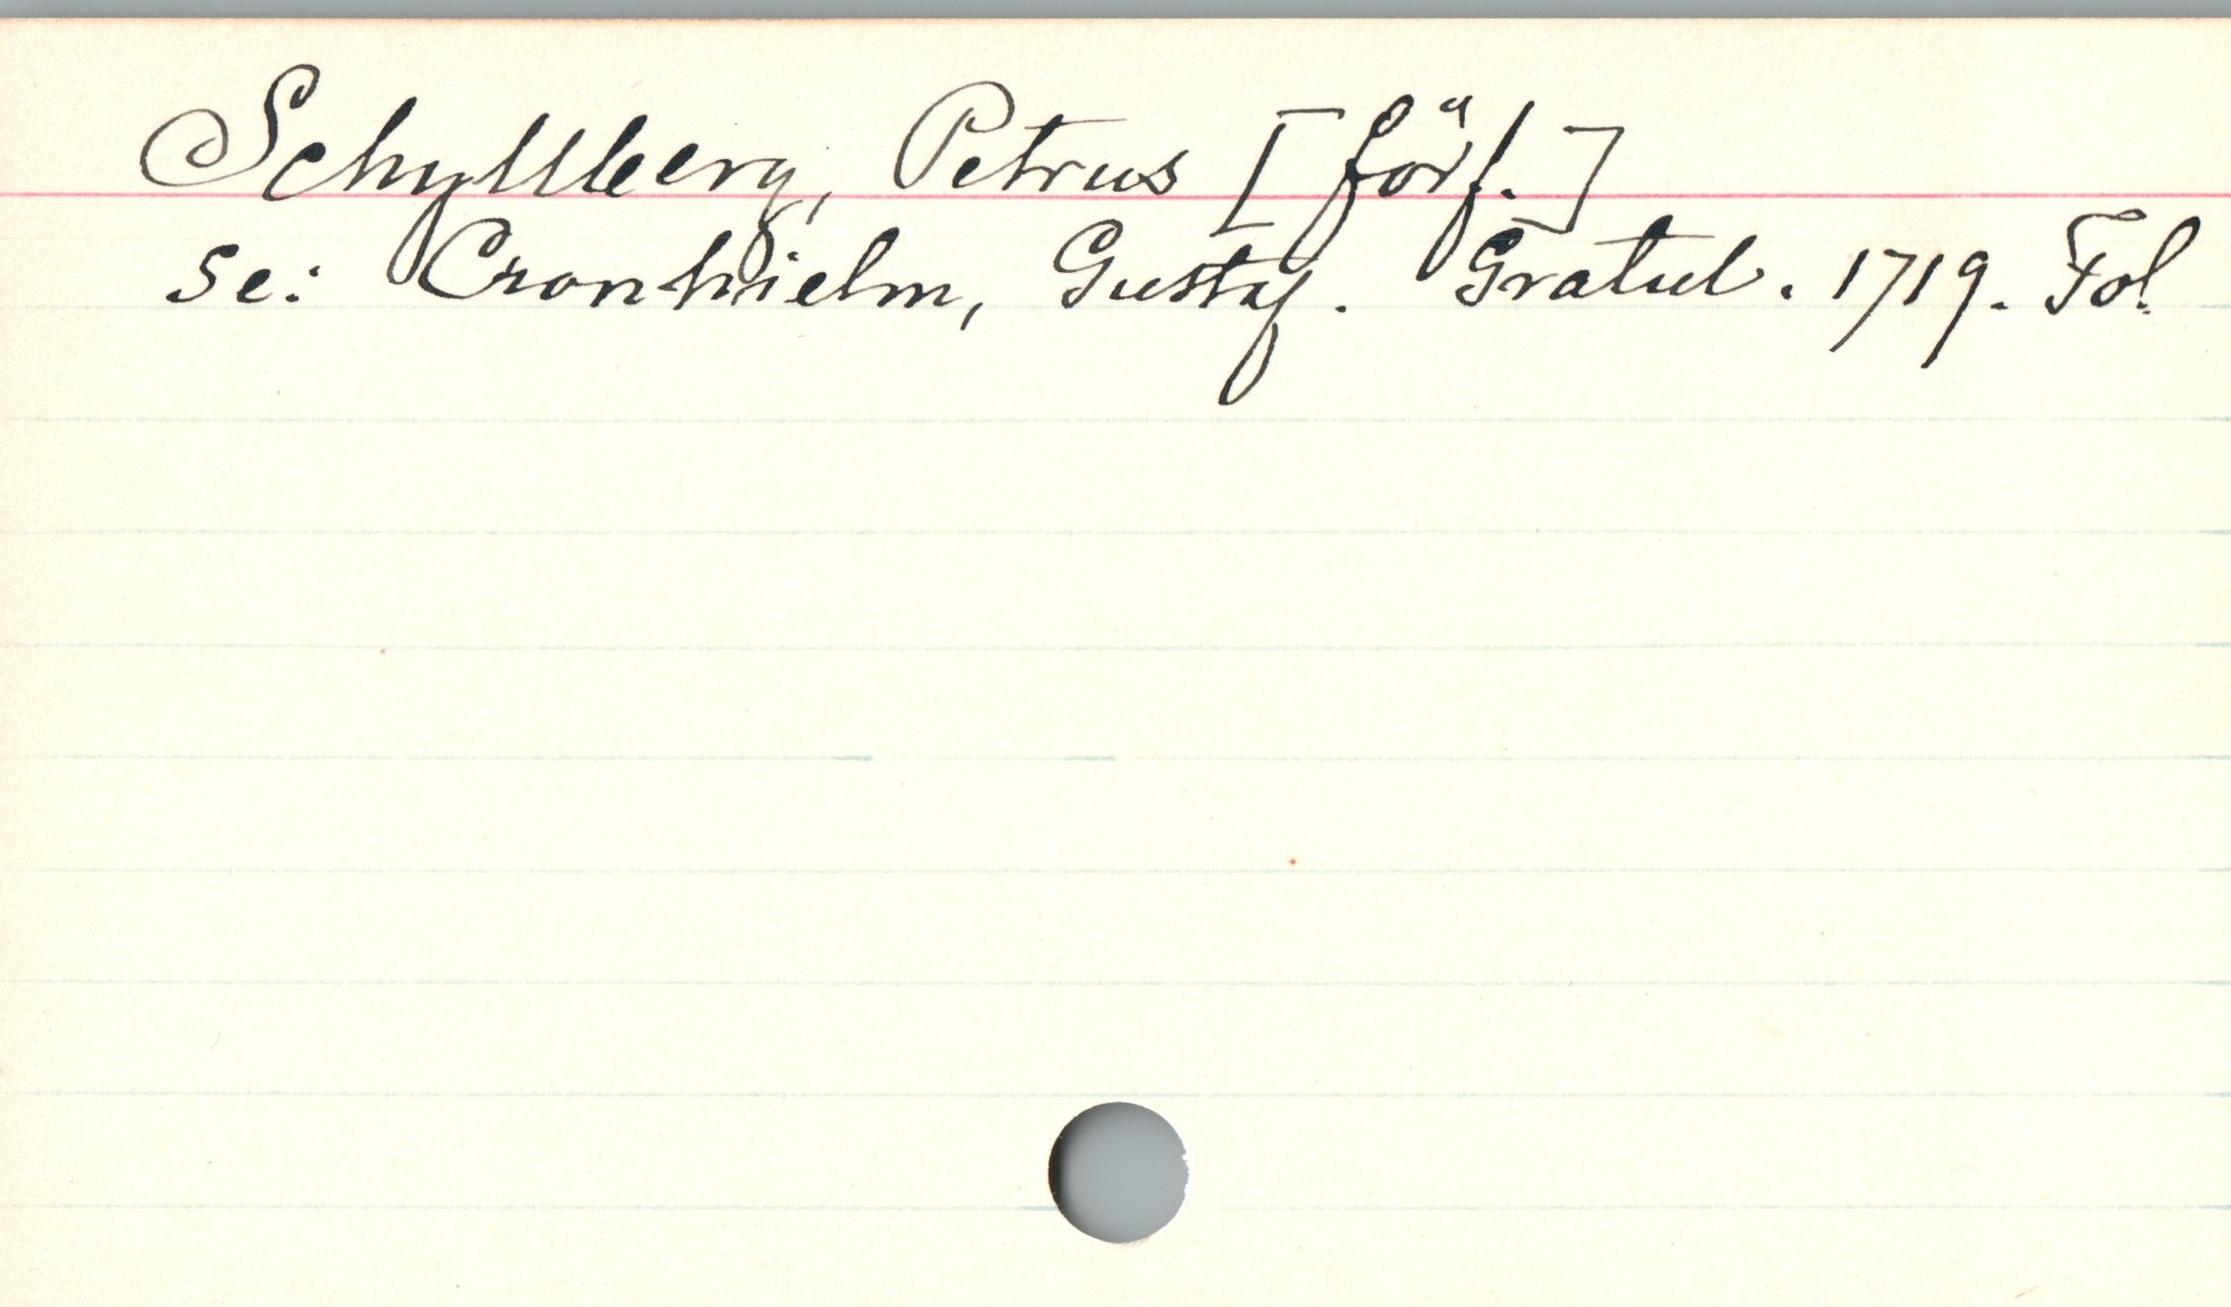 Schyllberg, Petrus [förf.]
se: Cronhielm, Gustaf. Gratul. 1719. Fol.